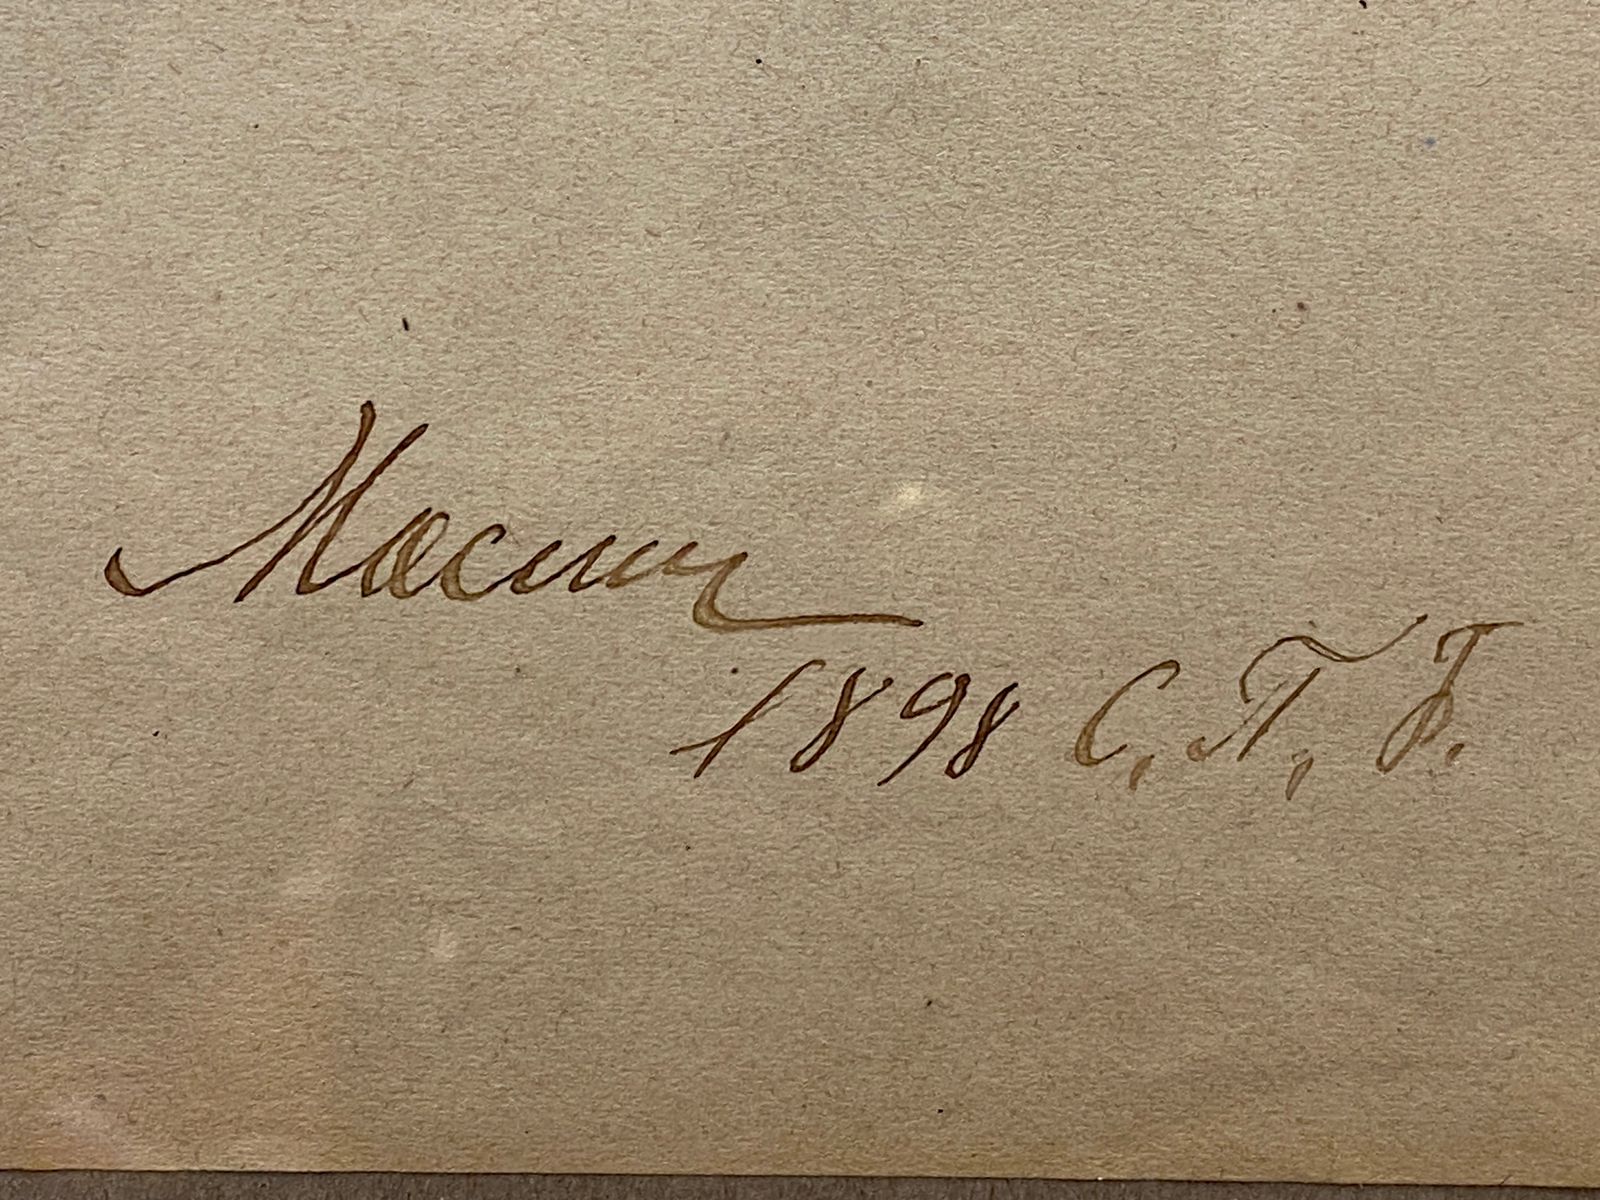 Масин
1898 С, П, Б.